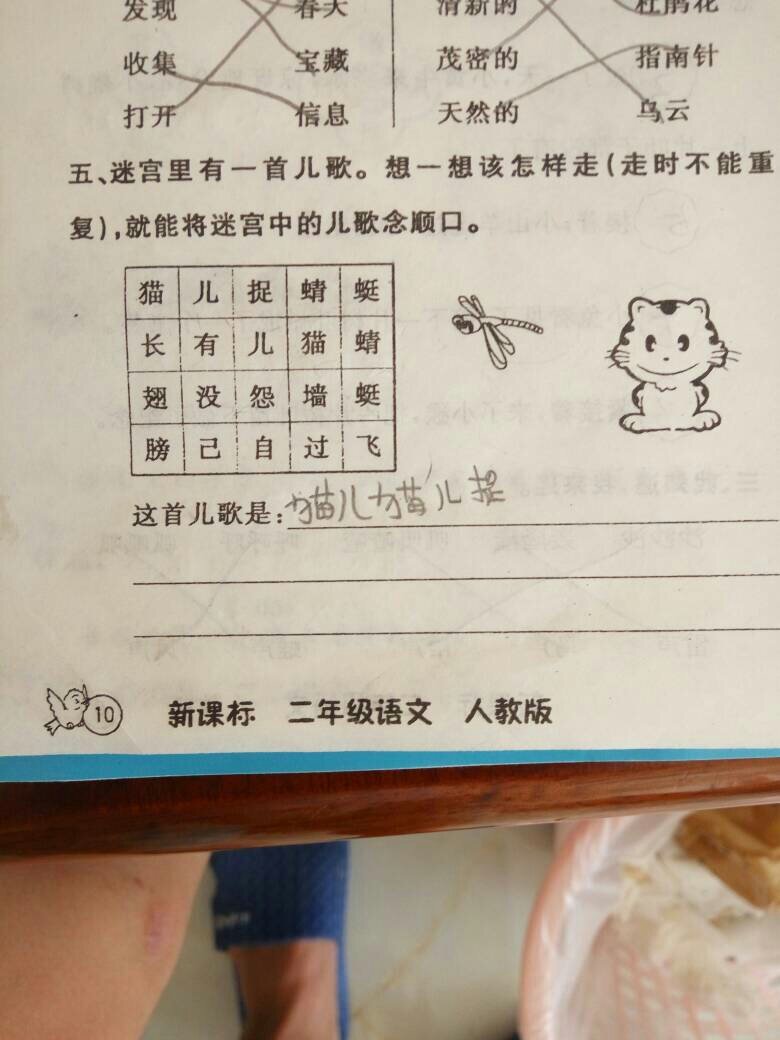 发现 春天 清新的 杜鹃花
收集 宝藏 茂密的 指南针
打开 信息 天然的 乌云
五、迷宫里有一首儿歌。想一想该怎样走(走时不能重
复),就能将迷宫中的儿歌念顺口。
猫 儿 捉 蜻 蜓
长 有 儿 猫 蜻
翅 没 怨 墙 蜓
膀 己 自 过 飞
这首儿歌是:猫儿猫儿捉
10 新课标 二年级语文 人教版